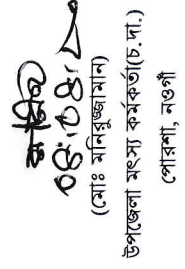 ০৪।০৪।
(মোঃ মনিরুজ্জামান)
উপজেলা মৎস্য কর্মকর্তা(চ.দা.)
পোরশা, নওগাঁ